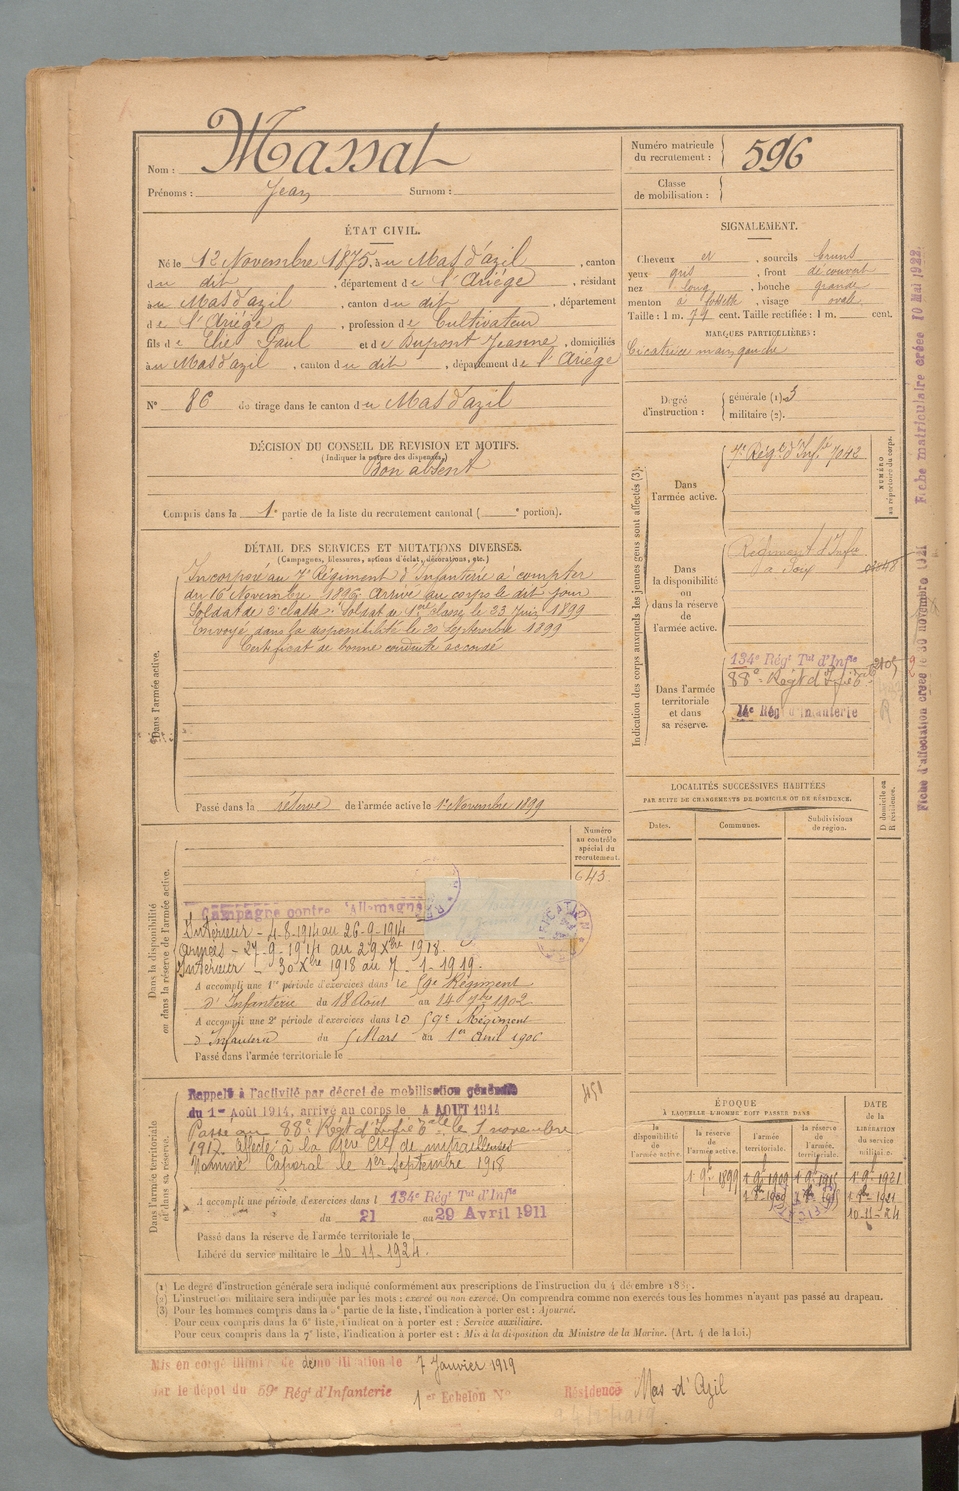 Nom : Massat
Prénoms : Jean Surnom :
Numéro matricule
du recrutement : 596
Classe
de mobilisation :
ÉTAT CIVIL.
Né le 12 Novembre 1875, à u Mas d'azil, canton
d u dit, département d e l'Ariége, résidant
à u Mas d'azil, canton d u dit, département
d e l'Ariége, profession d e Cultivateur
fils d e Elie Paul et d e Dupont Jeanne, domiciliés
à u Mas d'azil, canton d u dit, département d e l'Ariége
N° 86 de tirage dans le canton d u Mas d'azil
SIGNALEMENT.
Cheveux et, sourcils bruns
yeux gris, front découvert
nez long, bouche grande
menton à fossette, visage ovale
Taille : 1 m. 79 cent. Taille rectifiée : 1 m. cent.
MARQUES PARTICULIÈRES :
Cicatrice main gauche
Degré
d'instruction :
générale (1). 3
militaire (2).
DÉCISION DU CONSEIL DE REVISION ET MOTIFS.
(Indiquer la nature des dispenses.)
Bon absent
Compris dans la 1e partie de la liste du recrutement cantonal ( e portion).
DÉTAIL DES SERVICES ET MUTATIONS DIVERSES.
(Campagnes, blessures, actions d'éclat, décorations, etc.)
Dans l'armée active.
Incorporé au 7e Régiment d'Infanterie à compter
du 16 Novembre 1896. Arrivé au corps le dit jour
Soldat de 2e classe. Soldat de 1ère classe le 23 Juin 1899
Envoyé dans la disponibilité le 20 Septembre 1899
Certificat de bonne conduite accordé
Passé dans la réserve de l'armée active le 1er Novembre 1899
Indication des corps auxquels les jeunes gens sont affectés (3).
NUMÉRO
au répertoire du corps.
Dans
l'armée active.
7e Régt d'Infie 7042
Dans
la disponibilité
ou
dans la réserve
de
l'armée active.
Régiment d'Infie
à Foix
Dans l'armée
territoriale
et dans
sa réserve.
134e Régt Tal d'Infie
88e Régt d'Infie
14e Rég d'Infanterie
Fiche d'affectation créée le 30 novembre 1921 Fiche matriculaire créée 10 Mai 1922
LOCALITÉS SUCCESSIVES HABITÉES
PAR SUITE DE CHANGEMENTS DE DOMICILE OU DE RÉSIDENCE.
D domicile ou
R résidence.
Dates. Communes. Subdivisions
de région.
Numéro
au contrôle
spécial du
recrutement.
643
Dans la disponibilité
ou dans la réserve de l'armée active.
Campagne contre l'Allemagne
Intérieur - 4-8-1914 au 26-9-1914
Armées - 27-9-1914 au 29 Xbre 1918.
Intérieur - 30 Xbre 1918 au 7-1-1919.
A accompli une 1e période d'exercices dans le 59e Régiment
d'Infanterie du 18 Août au 14 7bre 1902
A accompli une 2e période d'exercices dans le 59e Régiment
d'Infanterie du 5 Mars au 1er Avril 1906
Passé dans l'armée territoriale le
Dans l'armée territoriale
et dans sa réserve.
Rappelé à l'activité par décret de mobilisation générale
du 1er Août 1914, arrivé au corps le 4 AOUT 1914
Passe au 88e Régt d'Infie le 1 novembre
1917. Affecté à la Cie de mitrailleuses
Nommé Caporal le 1er Septembre 1918
A accompli une période d'exercices dans l 134e Régt Tal d'Infie
du 21 au 29 Avril 1911
Passé dans la réserve de l'armée territoriale le
Libéré du service militaire le 10-11-1924.
ÉPOQUE
À LAQUELLE L'HOMME DOIT PASSER DANS
la
disponibilité
de
l'armée active.
la réserve
de
l'armée active.
l'armée
territoriale.
la réserve
de
l'armée
territoriale.
DATE
de la
LIBÉRATION
du service
militaire.
1 9e 1899 1 9e 1909 1 9e 1915 1 9e 1921
10-11-24
(1) Le degré d'instruction générale sera indiqué conformément aux prescriptions de l'instruction du 4 décembre
(2) L'instruction militaire sera indiquée par les mots : exercé ou non exercé. On comprendra comme non exercés tous les hommes n'ayant pas passé au drapeau.
(3) Pour les hommes compris dans la 2e partie de la liste, l'indication à porter est : Ajourné.
Pour ceux compris dans la 6e liste, l'indication à porter est : Service auxiliaire.
Pour ceux compris dans la 7e liste, l'indication à porter est : Mis à la disposition du Ministre de la Marine. (Art. 4 de la loi.)
Mis en congé illimité de démobilisation le 7 Janvier 1919
par le dépôt du 59e Régt d'Infanterie 1er Echelon N° Résidence Mas d'Azil